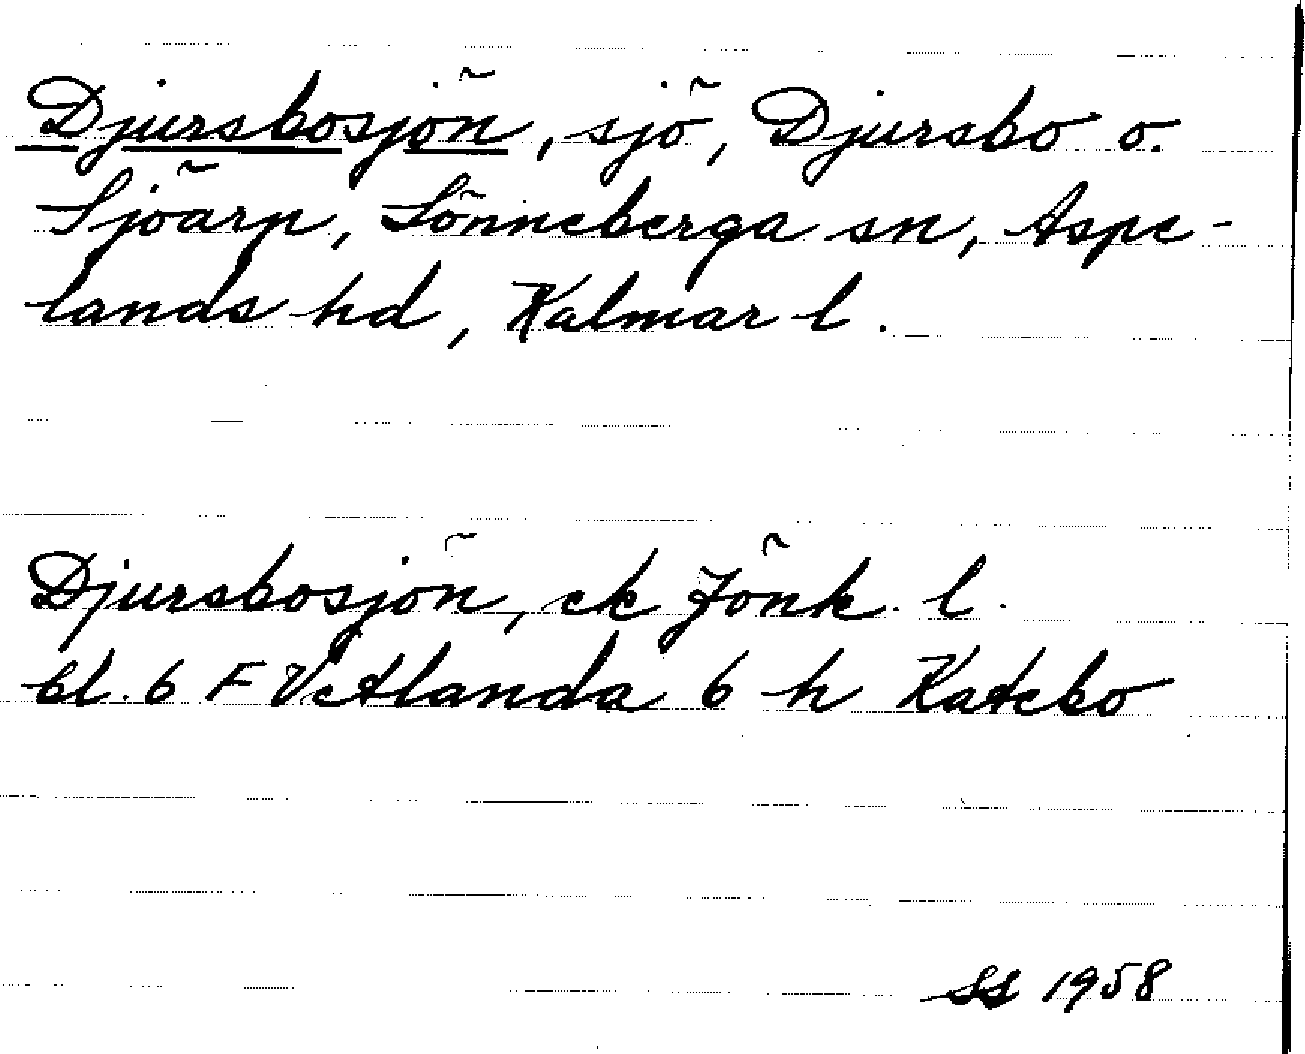 Djursbosjön, sjö, Djursbo o.
Sjöarp, Lönneberga sn, Aspe-
lands hd, Kalmar l.
Djursbosjön, ek Jönk. l.
bl. 6 F Vetlanda 6 h Katebo
SS 1958